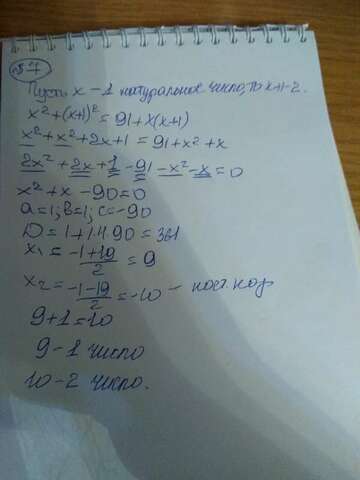 57
Пусть x - 1 натуральное число, то x+1 - 2.
x² + (x+1)² = 91 + x(x+1)
x² + x² + 2x + 1 = 91 + x² + x
2x² + 2x + 1 - 91 - x² - x = 0
x² + x - 90 = 0
a = 1; b = 1; c = -90
D = 1 + 4·90 = 361
x₁ = (-1+19)/2 = 9
x₂ = (-1-19)/2 = -10 - пост. кор
9 + 1 = 10
9 - 1 число
10 - 2 число.